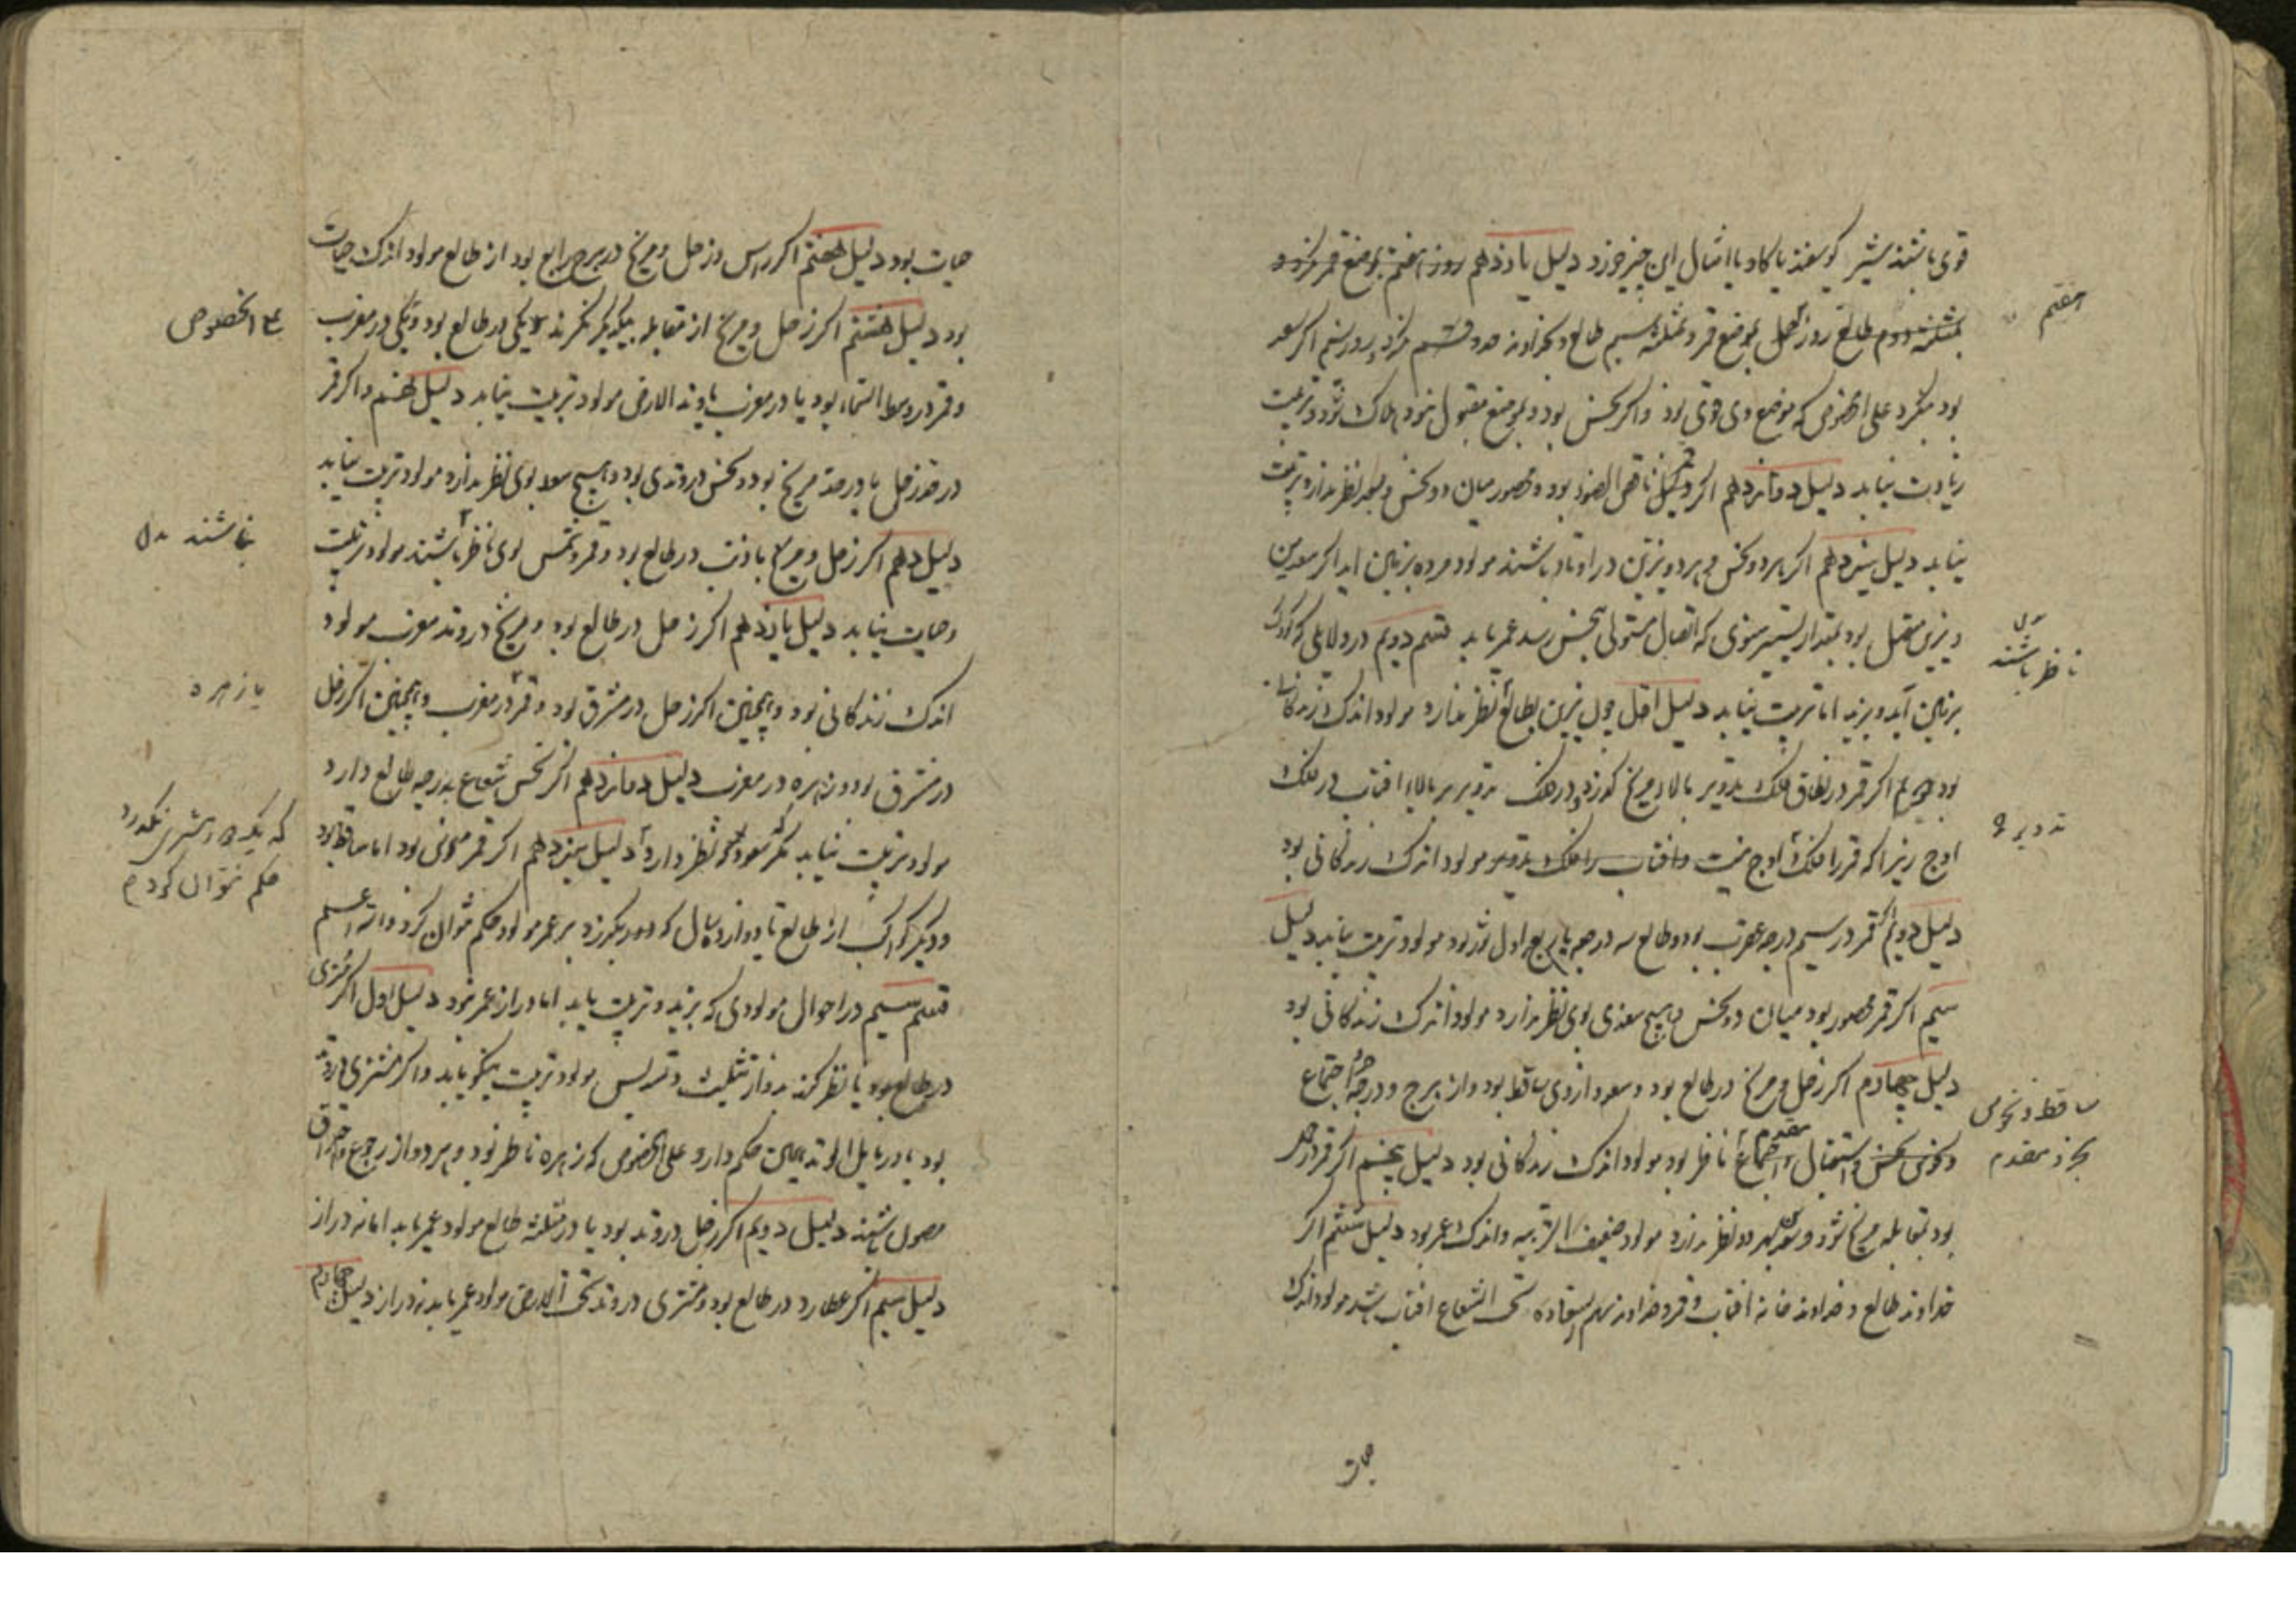 قوی باشند شیر گوسفند یا گاو یا امثال این چیز خورد دلیل یازدهم روز هفتم بموضع قمر نگرد و
هفتم
بمثلثه دوم طالع روز اول بموضع قمر و مثلثه سیم طالع و بخداوند حدود قسمت نگرد روز سیم اگر سعد
بود نگرد علی الخصوص که موضع وی قوی بود و اگر نحس بود و بموضع مقبول نبود هلاک شود و تربیت
زیادت نیابد دلیل دوازدهم اگر وکیل ناقص الضوء بود و محصور میان دو نحس و سعد نظر ندارد تربیت
نیابد دلیل سیزدهم اگر هر دو نحس و هر دو نیرین در اوتاد باشند مولود مرده بزمین آید اگر سعدین
ناظر باشند
و نیرین متصل بود بمقدار تسییر سنوی که اتصال مستولی بنحس رسد عمر یابد قسم دویم در دلایلی که کودک
بزمین آید و بزید اما تربیت نیابد دلیل اول چون نیرین بطالع نظر ندارد مولود اندک زندگانی
بود اگر قمر در نطاق فلک تدویر بالای مریخ گذرد و در فلک تدویر بر بالای افتاب در فلک
تدویر و
اوج زیرا که قمر را فلک اوج نیست و افتاب را فلک تدویر مولود اندک زندگانی بود
دلیل دویم اگر قمر در سیم درجه عقرب بود و طالع سه درجه یا ربع اول ثور بود مولود تربیت نیابد دلیل
سیم اگر قمر محصور بود میان دو نحس و هیچ سعدی بوی نظر ندارد مولود اندک زندگانی بود
دلیل چهارم اگر زحل و مریخ در طالع بود و سعود از وی ساقط بود و از برج و درجه جزو اجتماع
ساقط و نحوس
و نحوس بجزو استقبال و اجتماع مقدم ناظر بود مولود اندک زندگانی بود دلیل پنجم اگر قمر در حد
بجزو مقدم
بود بمقابله مریخ شود و سعد بهر دو نظر ندارد مولود ضعیف التربیه و اندک عمر بود دلیل ششم اگر
خداوند طالع و خداوند خانه افتاب و قمر و خداوند سهم سعادت تحت الشعاع افتاب باشد مولود اندک
حیات
حیات بود دلیل هفتم اگر راس و زحل و مریخ در برج رابع بود از طالع مولود اندک حیات
بود دلیل هشتم اگر زحل و مریخ از مقابله بیکدیگر نگرند یکی در طالع بود و یکی در مغرب
علی الخصوص
و قمر در وسط السماء بود یا در مغرب یا وتد الارض مولود تربیت نیابد دلیل نهم و اگر قمر
در حد زحل یا در حد مریخ بود و نحس در وتدی بود و هیچ سعد بوی نظر ندارد مولود تربیت نیابد
دلیل دهم اگر زحل و مریخ با ذنب در طالع بود و قمر و شمس بوی ناظر باشند مولود تربیت
نباشند
و حیات نیابد دلیل یازدهم اگر زحل در طالع بود و مریخ در وتد مغرب مولود
اندک زندگانی بود و همچنین اگر زحل در مشرق بود و قمر در مغرب و همچنین اگر زحل
یا زهره
در مشرق بود و زهره در مغرب دلیل دوازدهم اگر نحس شعاع بدرجه طالع دارد
مولود تربیت نیابد مگر سعود نظر دارد دلیل سیزدهم اگر قمر قوی بود اما ساقط بود
که یک دور مشتری نگذرد
حکم نتوان کردم
و دیگر کواکب از طالع تا دوازده سال که دور بگذرد بر عمر مولود حکم نتوان کرد والله اعلم
قسم سیم در احوال مولودی که بزید و تربیت یابد اما دراز عمر نبود دلیل اول اگر مشتری
در طالع بود یا نظر کند بدو از تثلیث و تسدیس مولود تربیت نیکو یابد و اگر مشتری در وتد
بود یا در مایل الوتد همین حکم دارد علی الخصوص که زهره ناظر بود و هر دو از رجوع و احتراق
باشند دلیل دویم اگر زحل در وتد بود یا در مثلثه طالع مولود عمر یابد اما نه دراز
دلیل سیم اگر عطارد در طالع بود و مشتری در وتد تحت الارض مولود عمر یابد نه دراز دلیل چهارم